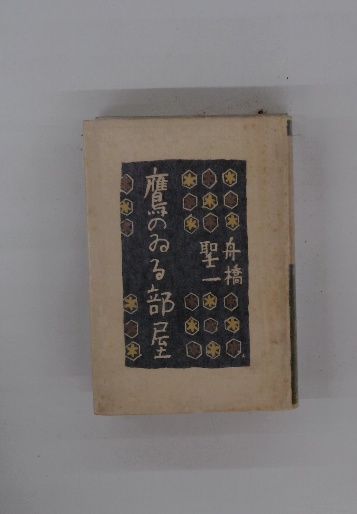 舟橋
聖一
鷹のゐる部屋